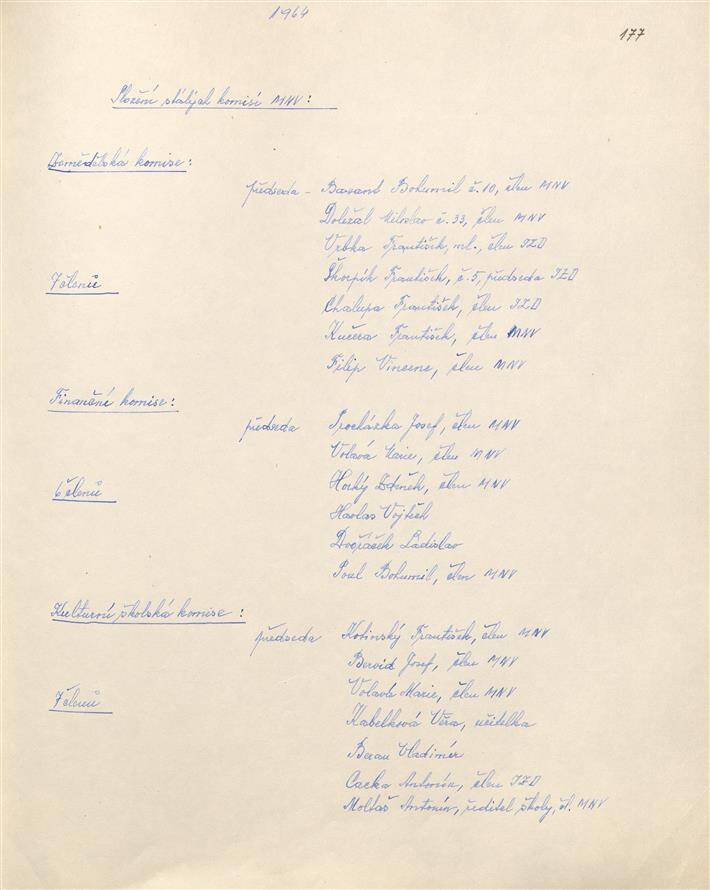 1964
177
Složení stálých komisí MNV:
Zemědělská komise:
předseda - Bavant Bohumil č. 10, člen MNV
Doležal Miloslav č. 33, člen MNV
Vrbka František, ml., člen JZD
Škorpík František, č. 5, předseda JZD
7 členů
Chalupa František, člen JZD
Kučera František, člen MNV
Filip Vincenc, člen MNV
Finanční komise:
předseda Procházka Josef, člen MNV
Volavá Marie, člen MNV
6 členů
Horký Zdeněk, člen MNV
Havlas Vojtěch
Dvořáček Ladislav
Poul Bohumil, člen MNV
Kulturní, školská komise:
předseda Kotinský František, člen MNV
Bervid Josef, člen MNV
Volavá Marie, člen MNV
7 členů
Kabelková Věra, učitelka
Beran Vladimír
Cacka Antonín, člen JZD
Moltaš Antonín, ředitel školy, čl. MNV